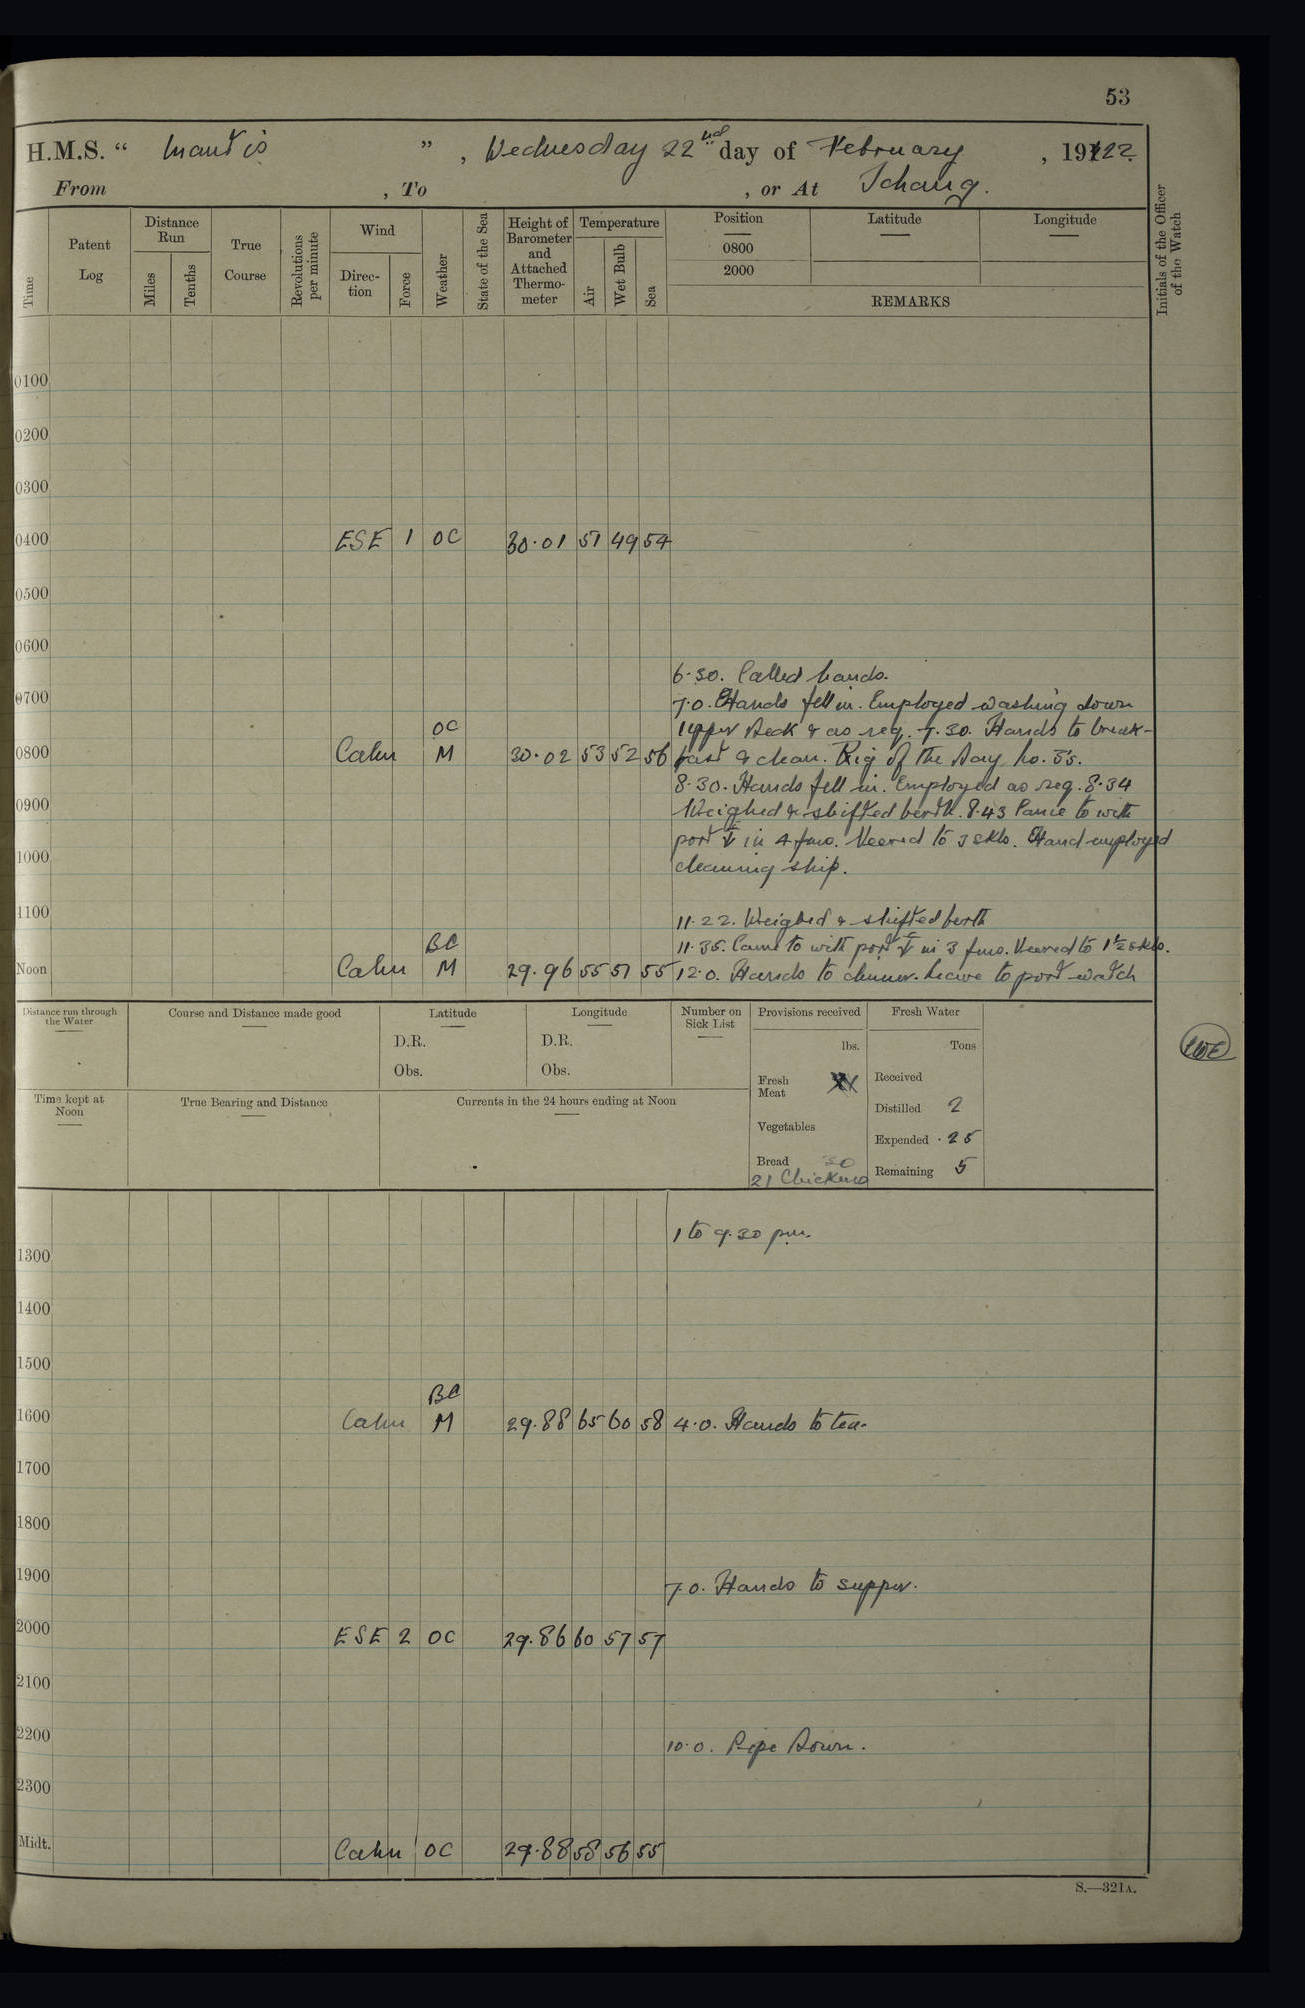 53
H.M.S. “ Mantis ” , Wednesday 22nd day of February , 1922
From , To , or At Ichang.
Time
Patent Log
Distance Run
Miles
Tenths
True Course
Revolutions per minute
Wind
Direc-tion
Force
Weather
State of the Sea
Height of Barometer and Attached Thermo-meter
Temperature
Air
Wet Bulb
Sea
Position
0800
2000
Latitude
Longitude
REMARKS
Initials of the Officer of the Watch
0100
0200
0300
0400 ESE 1 OC 30.01 51 49 54
0500
0600
6.30. Called hands.
0700 7.0. Hands fell in. Employed washing down
OC upper deck & as req. 7.30. Hands to break-
0800 Calm M 30.02 53 52 56 fast & clean. Rig of the day No. 3's.
8.30. Hands fell in. Employed as req. 8.34
0900 Weighed & shifted berth. 8.43 Came to with
port ⚓ in 4 fms. Veered to 3 skls. Hand employed
1000 cleaning ship.
1100 11.22. Weighed & shifted berth
BC 11.35. Came to with port ⚓ in 3 fms. Veered to 1½ skls.
Noon Calm M 29.96 55 51 55 12.0. Hands to dinner. Leave to port watch
Distance run through the Water
Course and Distance made good
Latitude
D.R.
Obs.
Longitude
D.R.
Obs.
Number on Sick List
Provisions received
lbs.
Fresh Meat
Vegetables
Bread 30
21 Chickens
Fresh Water
Tons
Received
Distilled 2
Expended .25
Remaining 5
Time kept at Noon
True Bearing and Distance
Currents in the 24 hours ending at Noon
1 to 9.30 p.m.
1300
1400
1500
BC
1600 Calm M 29.88 65 60 58 4.0. Hands to tea.
1700
1800
1900 7.0. Hands to supper.
2000 ESE 2 OC 29.86 60 57 57
2100
2200 10.0. Pipe Down.
2300
Midt. Calm OC 29.88 58 56 55
S.—321A.